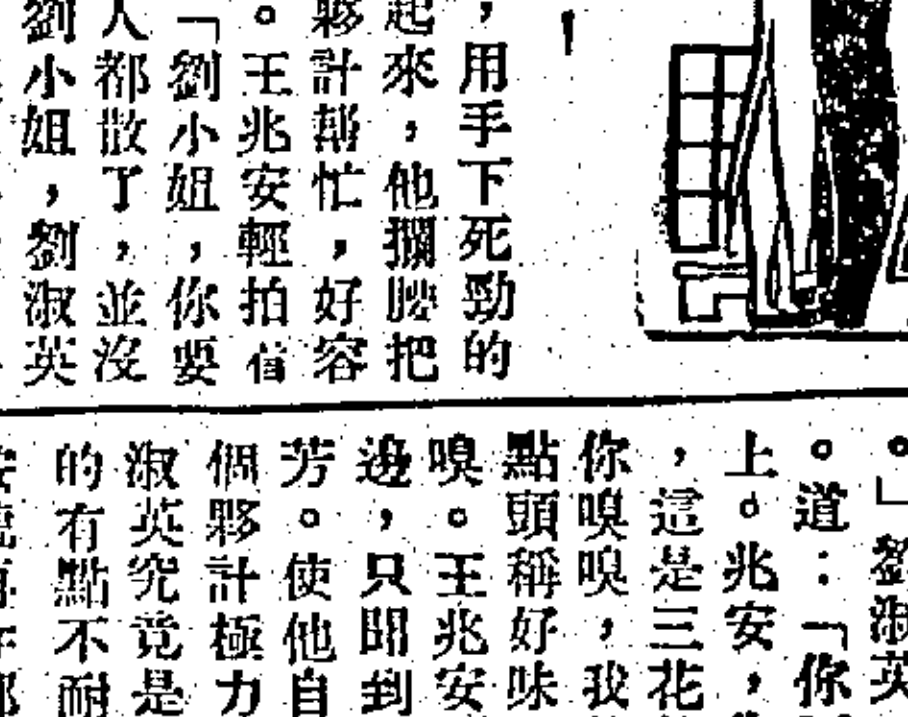 ，用手下死勁的
起來，他攔腰把
夥計幫忙，好容
。王兆安輕拍着
「劉小姐，你要
人都散了，並沒
劉小姐，劉淑英
。」劉淑英
。道：「你
上。兆安，
，這是三花
你嗅嗅，我
點頭稱好味
嗅。王兆安
邊，只聞到
芳。使他自
個夥計極力
淑英究竟是
的有點不耐